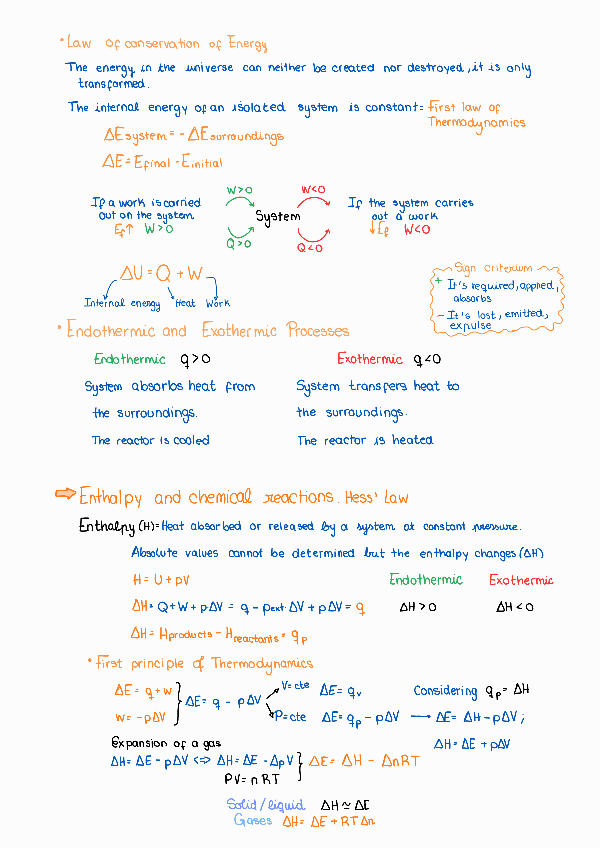 * Law of conservation of Energy
The energy in the universe can neither be created nor destroyed, it is only
transformed.
The internal energy of an isolated system is constant = First law of
Thermodynamics
ΔEsystem = - ΔEsurroundings
ΔE = Efinal - Einitial
W>0 W<0
If a work is carried
out on the system
Ef↑ W>0
System
If the system carries
out a work
↓Ef W<0
Q>0 Q<0
ΔU = Q + W
Internal energy Heat Work
Sign criterium
+ It's required, applied,
absorbs
- It's lost, emitted,
expulse
* Endothermic and Exothermic Processes
Endothermic q>0 Exothermic q<0
System absorbs heat from System transfers heat to
the surroundings. the surroundings.
The reactor is cooled The reactor is heated
⇒ Enthalpy and chemical reactions. Hess' Law
Enthalpy (H) = Heat absorbed or released by a system at constant pressure.
Absolute values cannot be determined but the enthalpy changes (ΔH)
H = U + pV Endothermic Exothermic
ΔH = Q + W + pΔV = q - pext ΔV + pΔV = q ΔH > 0 ΔH < 0
ΔH = Hproducts - Hreactants = qp
* First principle of Thermodynamics
ΔE = q + w
W = - pΔV
ΔE = q - pΔV
V = cte ΔE = qv Considering qp = ΔH
P = cte ΔE = qp - pΔV → ΔE = ΔH - pΔV;
Expansion of a gas ΔH = ΔE + pΔV
ΔH = ΔE - pΔV <=> ΔH = ΔE - ΔpV } ΔE = ΔH - ΔnRT
PV = nRT
Solid / liquid ΔH ≃ ΔE
Gases ΔH = ΔE + RTΔn